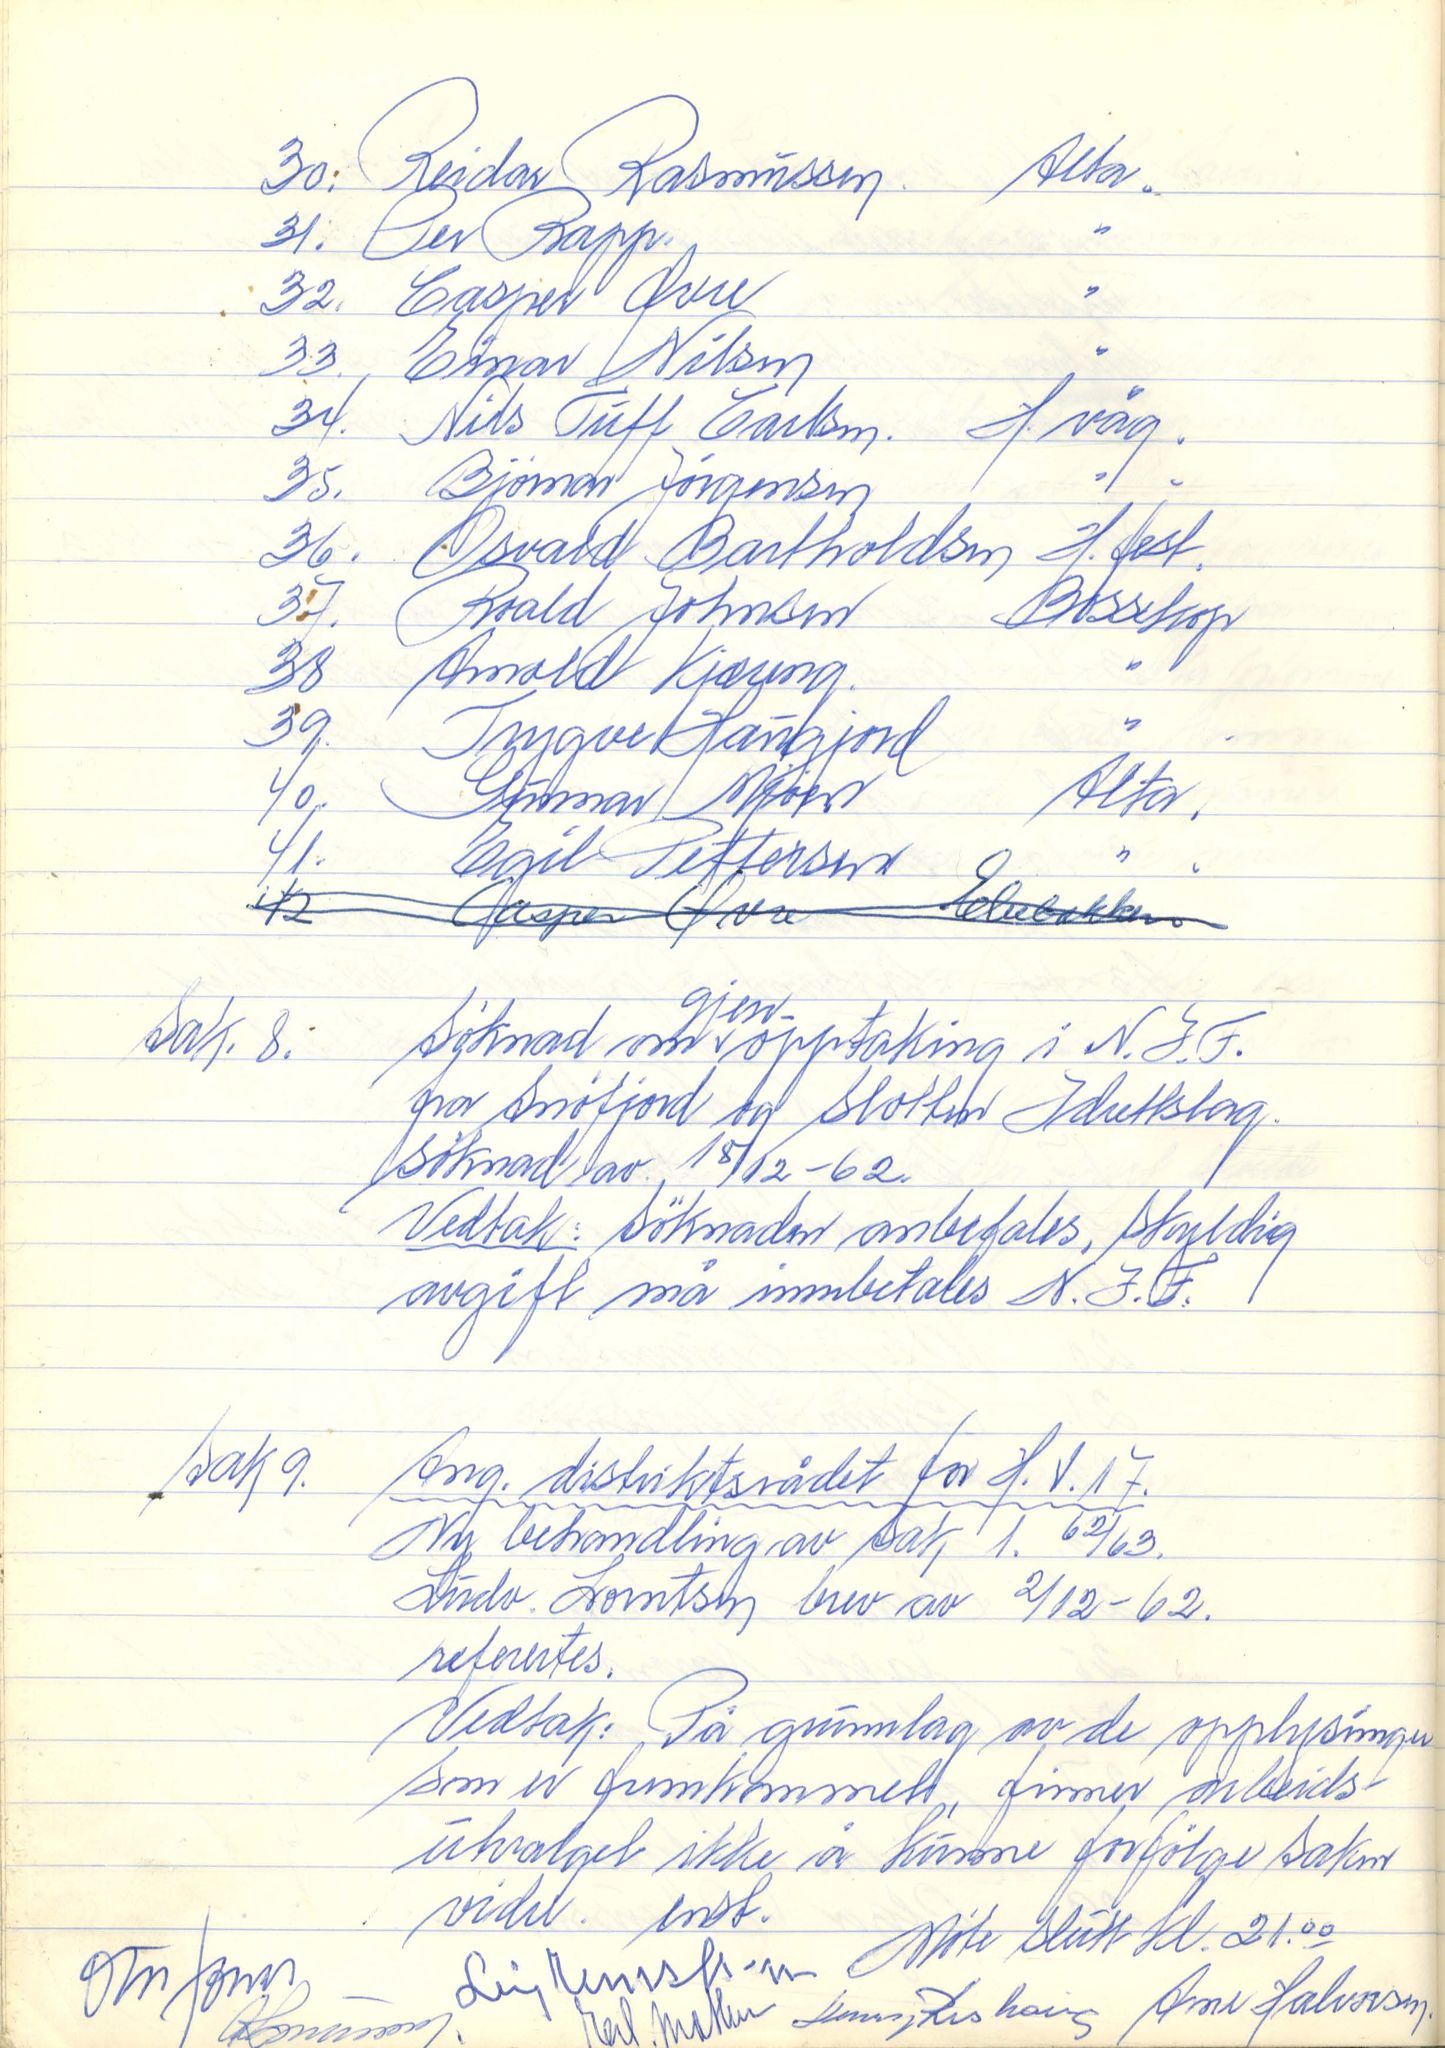 30. Reidar Rasmussen. Alta.
31. Per Rapp. "
32. Casper Øvre "
33. Einar Nilsen "
34. Nils Tuff Carlsen. H. våg.
35. Bjørnar Jörgensen " "
36. Osvald Bartholdsen H. fest.
37. Roald Johnsen Bossekop
38 Arnold Kjæring. "
39. Trygve Haugjord "
40. Gunnar Mjøen Alta.
41. Egil Pettersen " "
42 Casper Øvre Elvebakken
Sak. 8. Söknad om gjenopptaking i N.I.F.
fra Snöfjord og Slotten Idrettslag.
Söknad av 18/12-62.
Vedtak: Söknaden anbefales, skyldig
avgift må innbetales N.I.F.
Sak 9. Ang. distriktsrådet for H.V.17.
Ny behandling av sak 1. 62/63.
Ludv. Lorntsen brev av 2/12-62.
referertes.
Vedtak: På grunnlag av de opplysinger
som er fremkommet, finner arbeids-
utvalget ikke å kunne forfölge saken
videre. enst.
Möte slutt kl. 21.00
Arne Halvorsen.